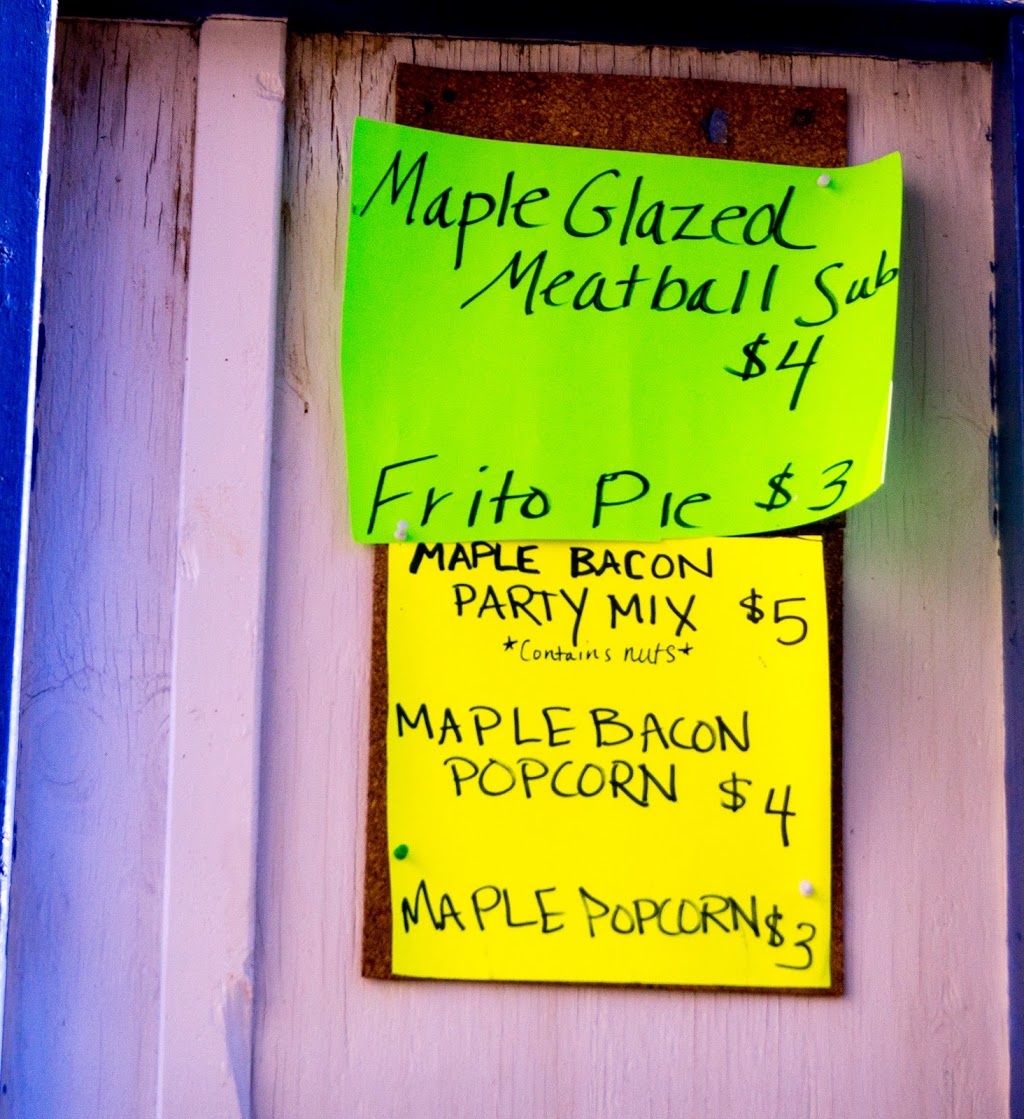 Maple Glazed
Meatball Sub
$4
Frito Pie $3
MAPLE BACON
PARTY MIX $5
*Contains nuts*
MAPLE BACON
POPCORN $4
MAPLE POPCORN $3